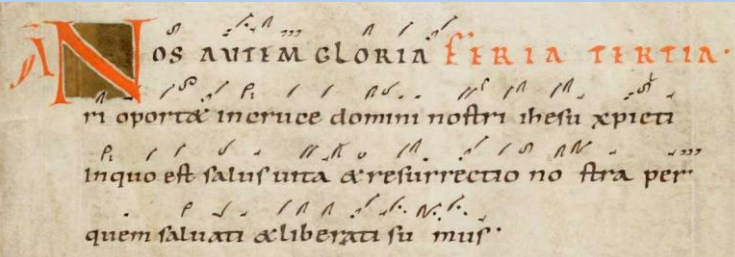 NOS AUTEM GLORIA FERIA TERTIA·
ri oportet in cruce domini nostri ihesu xpicti
inquo est salus uita & resurrectio no stra per·
quem saluati & liberati su mus·